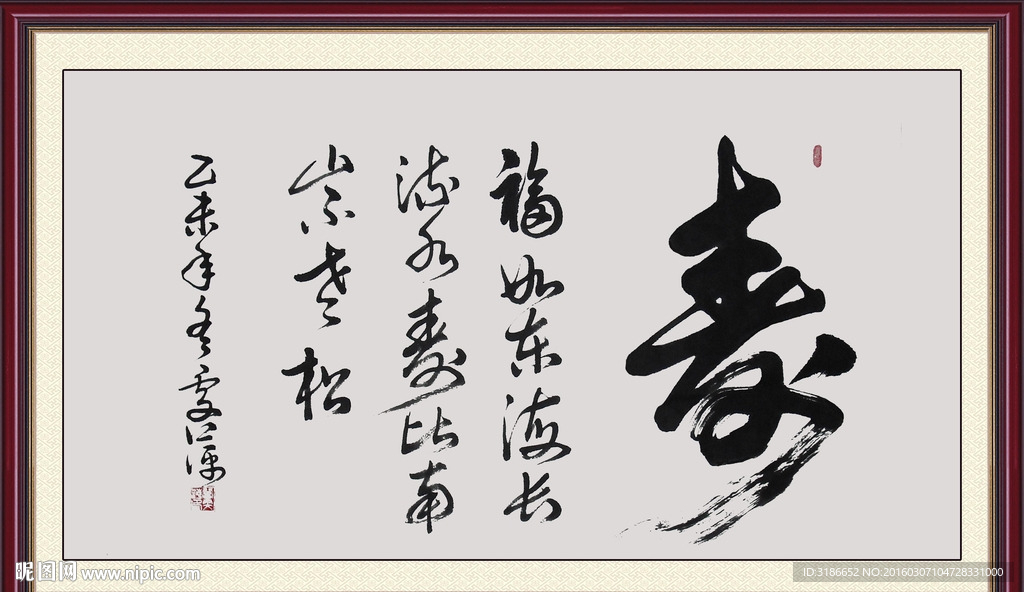 寿
福如东海长
流水寿比南
山不老松
乙未年冬
昵图网 www.nipic.com
ID:3186652 NO:20160307104728331000